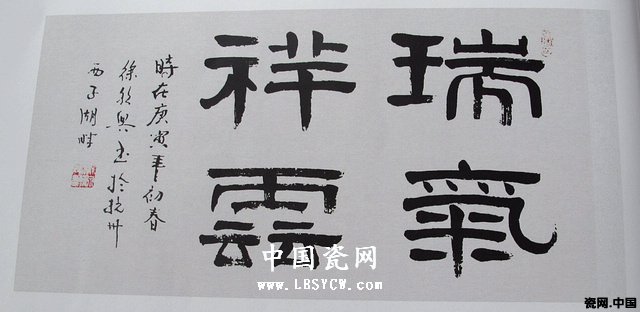 瑞氣
祥雲
時在庚寅年初春
徐興书於杭州
西子湖畔
中国瓷网
www.LBSYCW.com
瓷网.中国